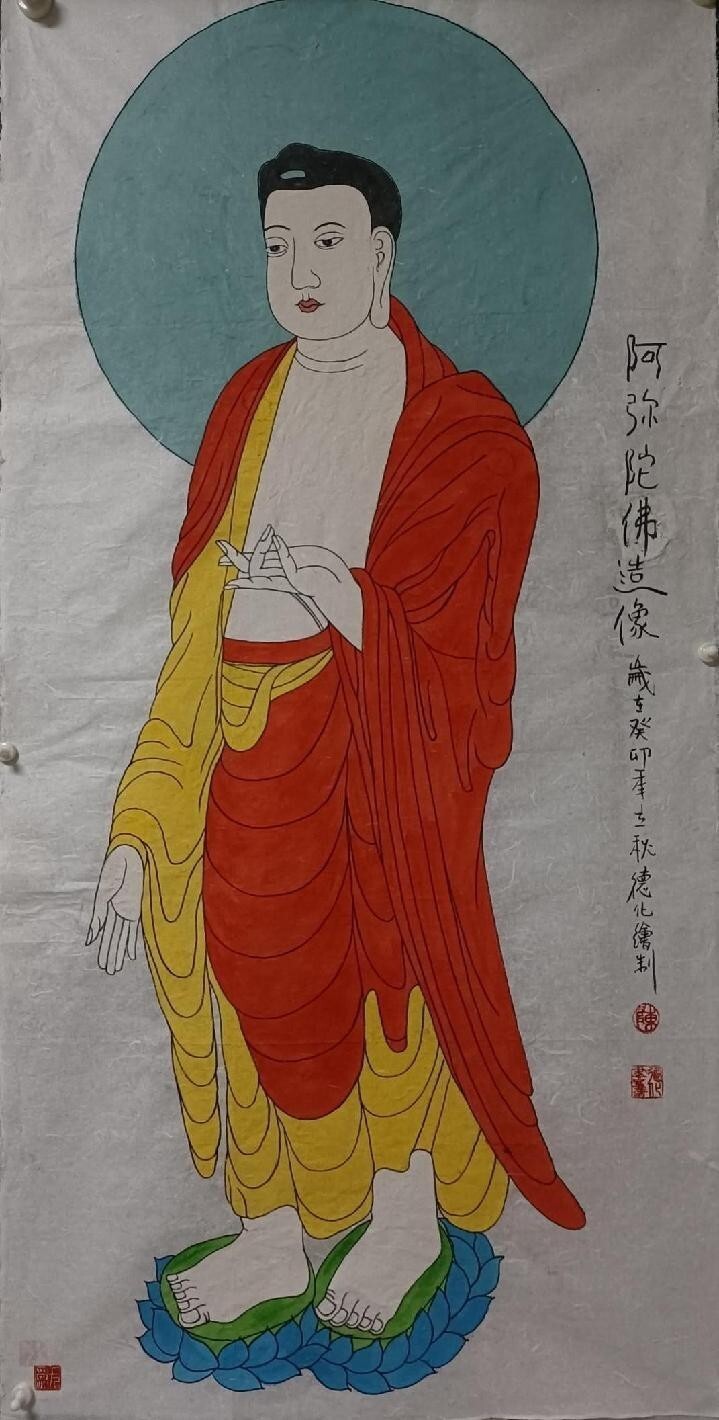 阿弥陀佛造像 歲在癸卯年立秋德化繪制
陳